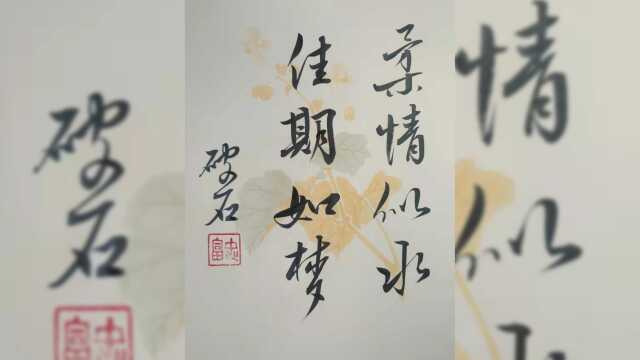 柔情似水
佳期如梦
破石